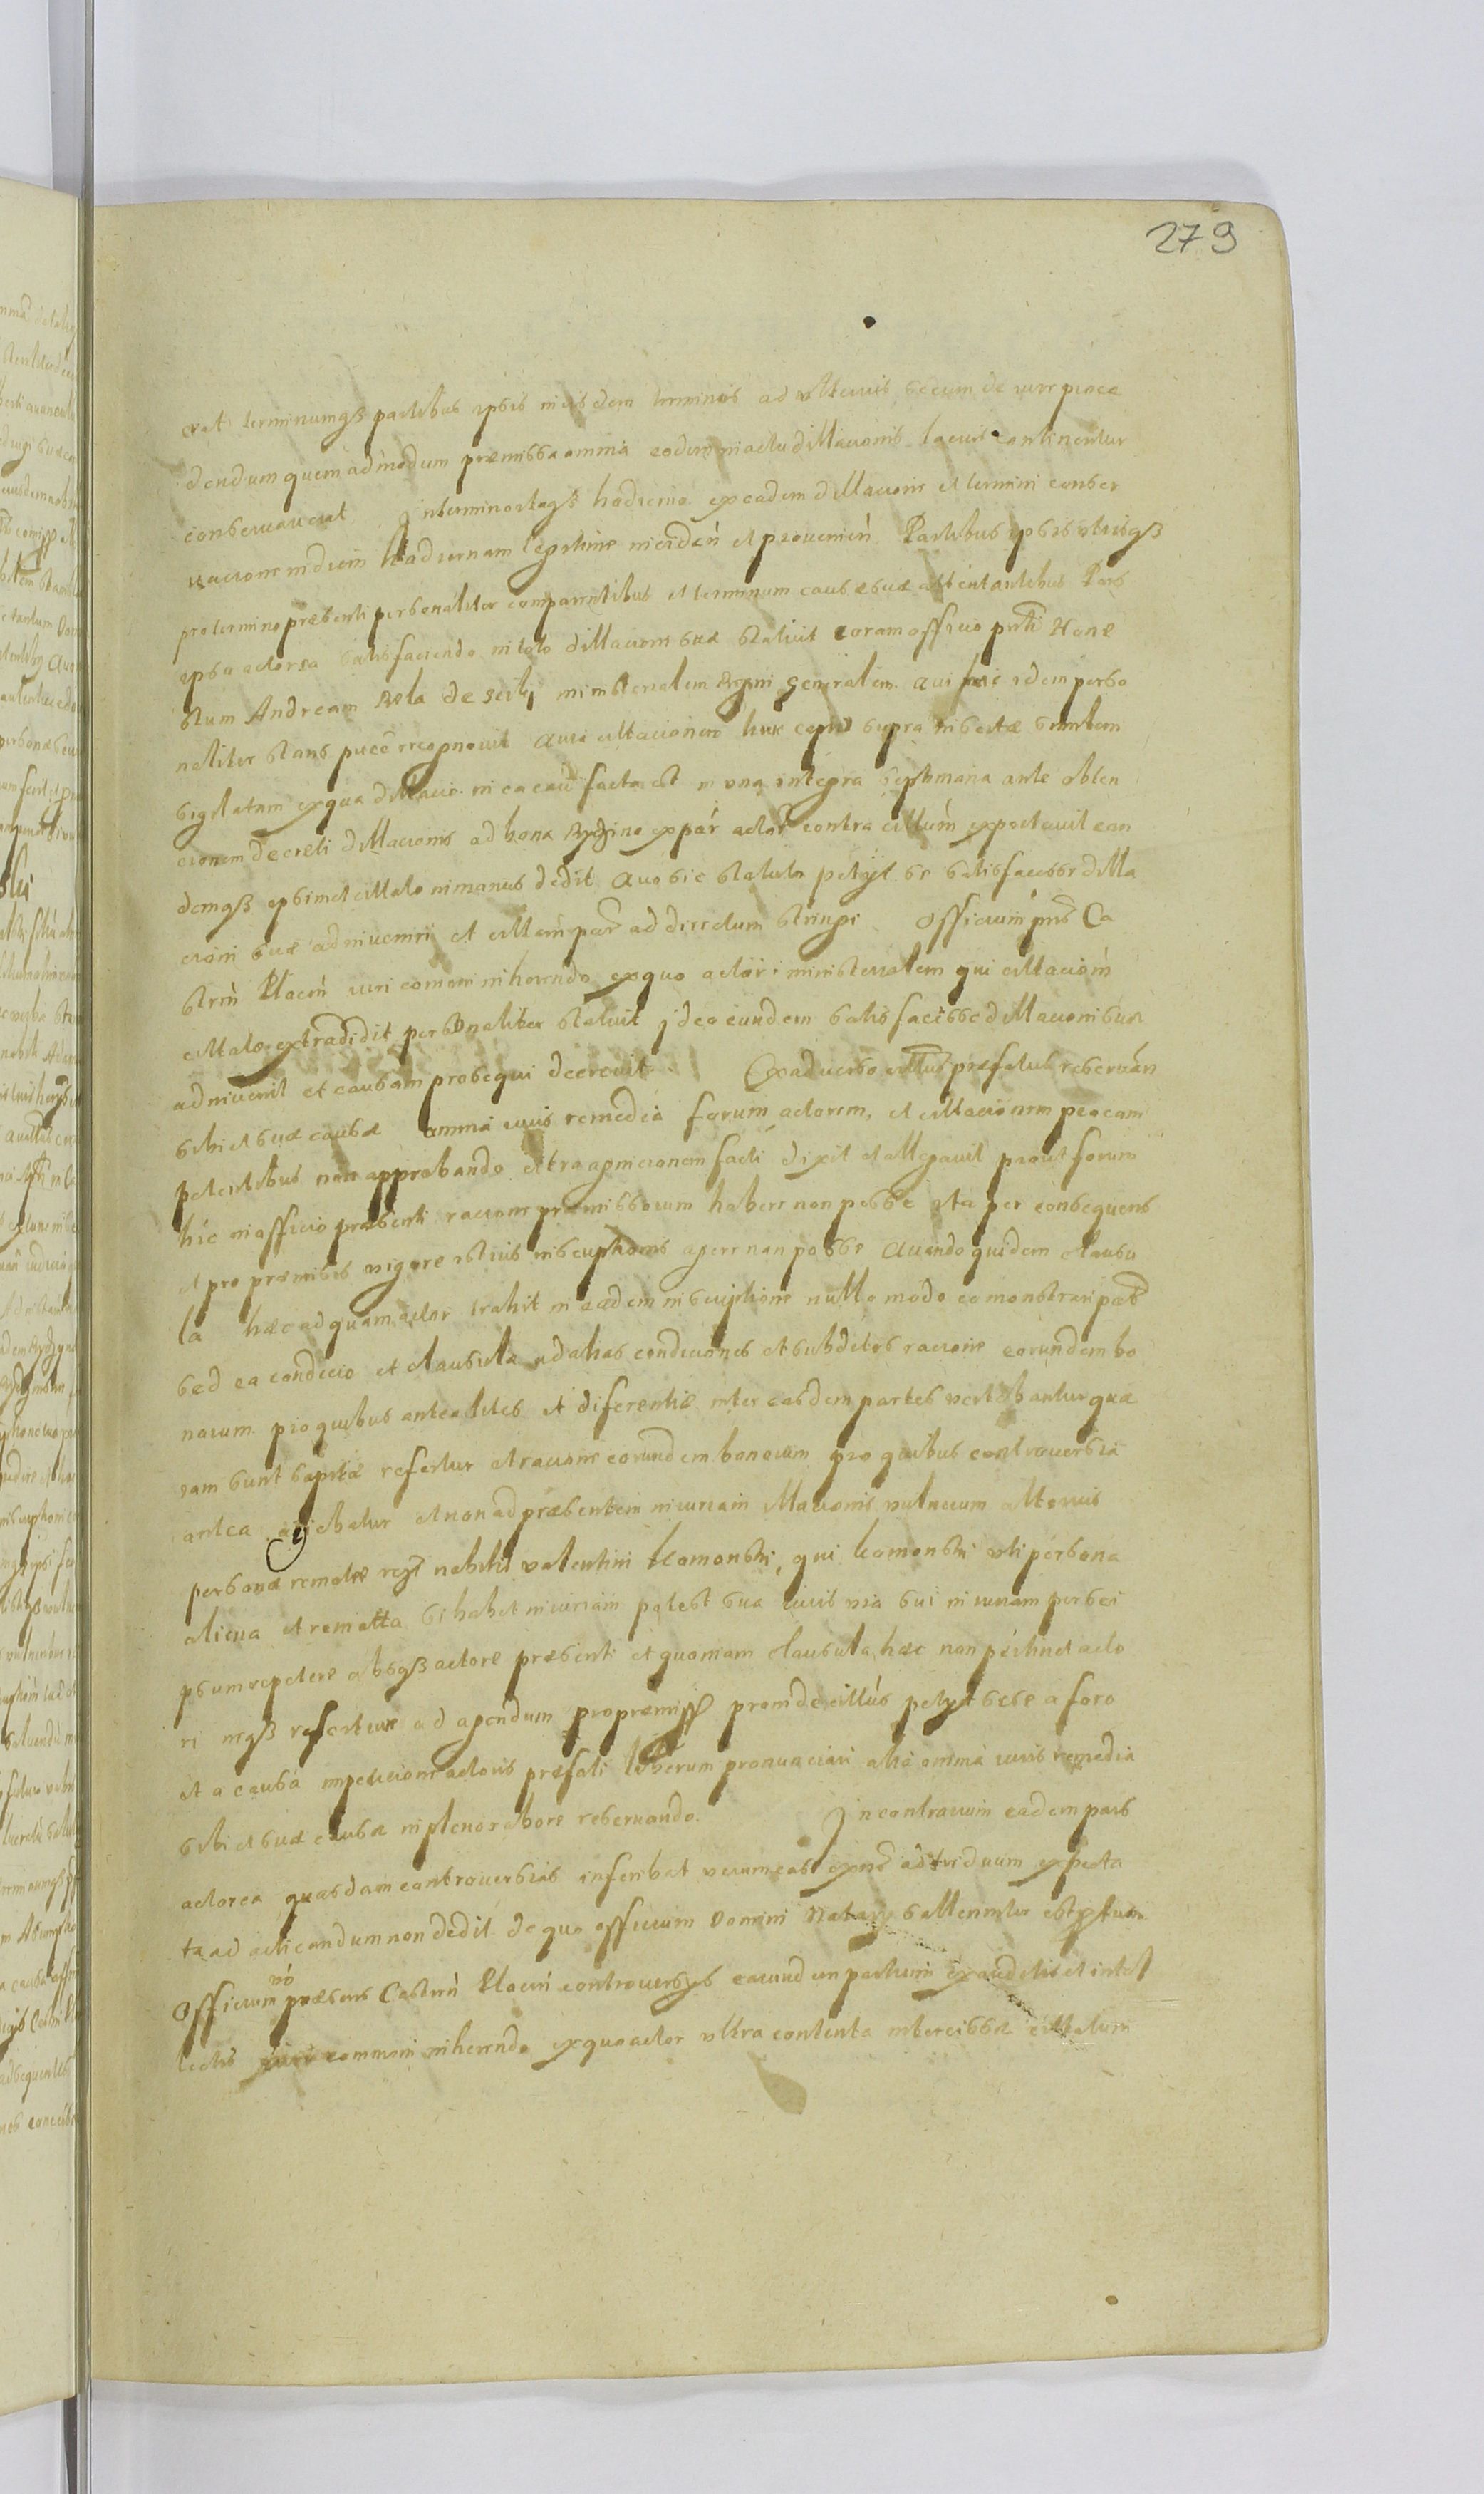 279
erat terminumq3 partibus ipsis eiusdem terminis ad ulterius secum de iure proce
dendum quemadmodum præmissa omnia eodem in actu dillacionis lacius continentur
conservaverat In termino itaq3 hodierno ex eadem dillacione et termini conser
vacione in diem hodiernam legitime inciden et provenien Partibus ipsis utrisq3
pro termino præsenti personaliter comparentibus et terminum causæ suæ attentantibus Pars
ipsa actorea satisfaciendo in toto dillacioni suæ statuit coram officio pnti Hone
stum Andream de ministerialem Regni generalem Qui hic idem perso
naliter stans recognovit Quia citacionem huc ceptis supra insertæ similem
sigillatam ex qua dillacio in ea causa facta est in una integra septimana ante obten
cionem decreti dillacionis ad bona ex par actor contra cittum exportavit ean
demq3 ipsimet cittato in manus dedit Quo sic statuto petyt se satisfecisse dilla
cioni suæ adinveniri et cittum par ad directum stringi Officium pns Ca
strn Placen iuri comuni inhærendo ex quo actor ministerialem qui cittacionem
cittato extradidit personaliter statuit ideo eundem satisfecisse dillacioni suæ
adinvenit et causam prosequi decrevit Ex adverso cittus præfatus reservan
sibi et suæ causæ omnia iuris remedia forum actorem, et cittacionem pro eam
petentibus non approbando citra agnicionem facti dixit et allegavit prout forum
hic in officio præsenti racione præmissorum habere non posse ita per consequens
et pro præmissis vigore istius inscriptionis agere non posse Quandoquidem clausu
la hæc ad quam actor trahit in eadem inscriptione nullo modo comonstrari pot
sed ea condicio et clausula ad alias condiciones et subditos racione eorundem bo
norum pro quibus antea lites et diferentiæ inter easdem partes vertebantur quæ
iam sunt sopitæ refertur et racione eorundem bonorum pro quibus controversia
antea agebatur et non ad præsentem iniuriam illacionis vulnerum alterius
personæ remotæ nobilis Valentini Komonski, qui Komonski uti persona
aliena et remotta si habet iniuriam potest sua iuris via sui iniuriam per sei
psum repetere absq3 actore præsenti et quoniam clausula hæc non pertinet acto
ri neq3 refertur ad agendum pro præmiss proinde cittus petyt sese a foro
et a causa impeticione actoris præfati liberum pronunciari alia omnia iuris remedia
sibi et suæ causæ in pleno robore reservando. In contrarium eadem pars
actorea quasdam controversias inferibat verum eas ex nc ad triduum expecta
ta ad acticandum non dedit de quo officium Domini Notary sallenniter est ptum
Officium vo præsens Castrn Placen controversys earundem partium exauditis et intel
lectis iuri communi inherendo ex quo actor ultra contenta intercissæ cittatum